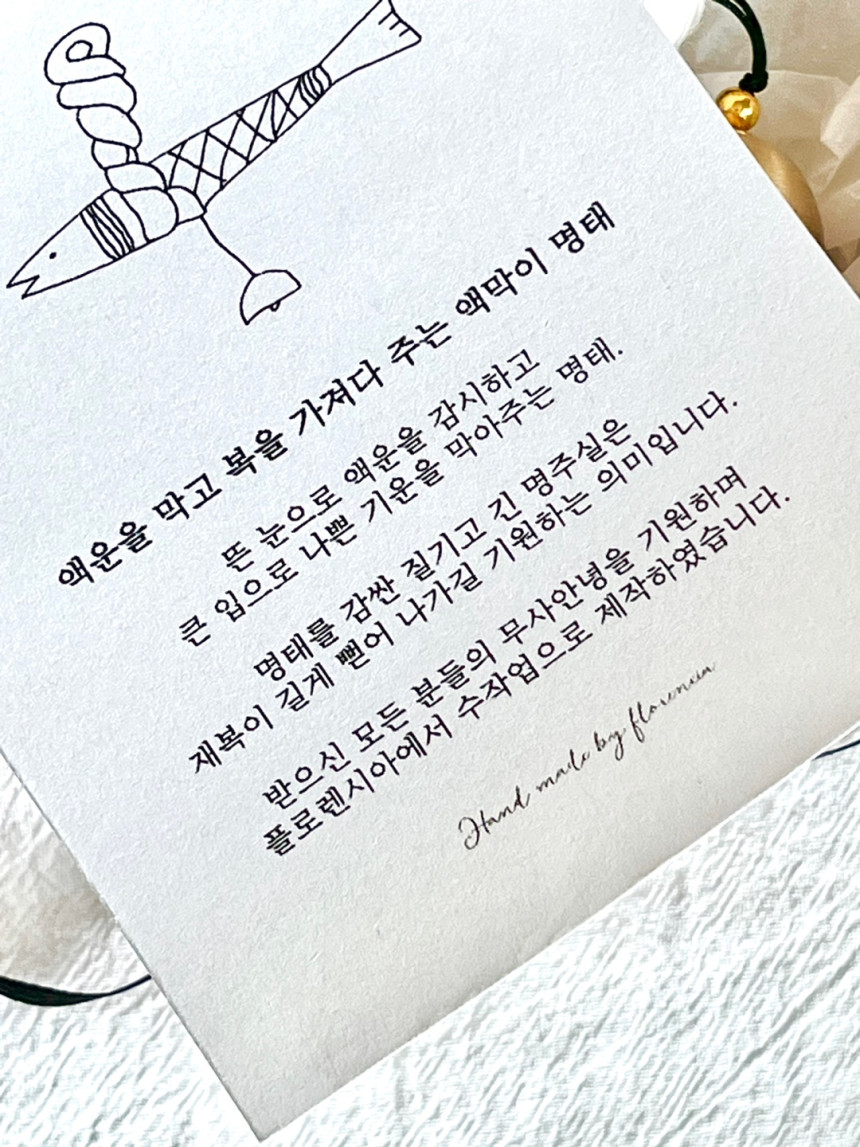 액운을 막고 복을 가져다 주는 액막이 명태
뜬 눈으로 액운을 감시하고
큰 입으로 나쁜 기운을 막아주는 명태.
명태를 감싼 질기고 긴 명주실은
재복이 길게 뻗어 나가길 기원하는 의미입니다.
받으신 모든 분들의 무사안녕을 기원하며
플로렌시아에서 수작업으로 제작하였습니다.
Hand made by florencia